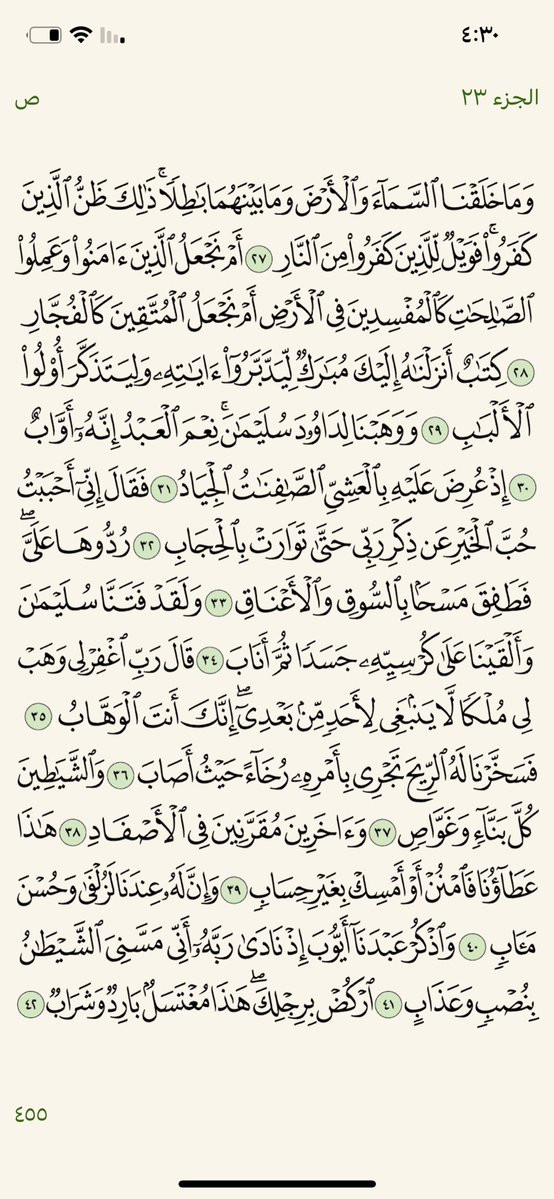 ٤:٣٠
الجزء ٢٣
ص
وَمَا خَلَقْنَا ٱلسَّمَآءَ وَٱلْأَرْضَ وَمَا بَيْنَهُمَا بَٰطِلًا ۚ ذَٰلِكَ ظَنُّ ٱلَّذِينَ
كَفَرُوا۟ ۚ فَوَيْلٌ لِّلَّذِينَ كَفَرُوا۟ مِنَ ٱلنَّارِ ٢٧ أَمْ نَجْعَلُ ٱلَّذِينَ ءَامَنُوا۟ وَعَمِلُوا۟
ٱلصَّٰلِحَٰتِ كَٱلْمُفْسِدِينَ فِى ٱلْأَرْضِ أَمْ نَجْعَلُ ٱلْمُتَّقِينَ كَٱلْفُجَّارِ
٢٨ كِتَٰبٌ أَنزَلْنَٰهُ إِلَيْكَ مُبَٰرَكٌ لِّيَدَّبَّرُوٓا۟ ءَايَٰتِهِۦ وَلِيَتَذَكَّرَ أُو۟لُوا۟
ٱلْأَلْبَٰبِ ٢٩ وَوَهَبْنَا لِدَاوُۥدَ سُلَيْمَٰنَ ۚ نِعْمَ ٱلْعَبْدُ إِنَّهُۥٓ أَوَّابٌ
٣٠ إِذْ عُرِضَ عَلَيْهِ بِٱلْعَشِىِّ ٱلصَّٰفِنَٰتُ ٱلْجِيَادُ ٣١ فَقَالَ إِنِّىٓ أَحْبَبْتُ
حُبَّ ٱلْخَيْرِ عَن ذِكْرِ رَبِّى حَتَّىٰ تَوَارَتْ بِٱلْحِجَابِ ٣٢ رُدُّوهَا عَلَىَّ ۖ
فَطَفِقَ مَسْحًۢا بِٱلسُّوقِ وَٱلْأَعْنَاقِ ٣٣ وَلَقَدْ فَتَنَّا سُلَيْمَٰنَ
وَأَلْقَيْنَا عَلَىٰ كُرْسِيِّهِۦ جَسَدًا ثُمَّ أَنَابَ ٣٤ قَالَ رَبِّ ٱغْفِرْ لِى وَهَبْ
لِى مُلْكًا لَّا يَنۢبَغِى لِأَحَدٍ مِّنۢ بَعْدِىٓ ۖ إِنَّكَ أَنتَ ٱلْوَهَّابُ ٣٥
فَسَخَّرْنَا لَهُ ٱلرِّيحَ تَجْرِى بِأَمْرِهِۦ رُخَآءً حَيْثُ أَصَابَ ٣٦ وَٱلشَّيَٰطِينَ
كُلَّ بَنَّآءٍ وَغَوَّاصٍ ٣٧ وَءَاخَرِينَ مُقَرَّنِينَ فِى ٱلْأَصْفَادِ ٣٨ هَٰذَا
عَطَآؤُنَا فَٱمْنُنْ أَوْ أَمْسِكْ بِغَيْرِ حِسَابٍ ٣٩ وَإِنَّ لَهُۥ عِندَنَا لَزُلْفَىٰ وَحُسْنَ
مَـَٔابٍ ٤٠ وَٱذْكُرْ عَبْدَنَآ أَيُّوبَ إِذْ نَادَىٰ رَبَّهُۥٓ أَنِّى مَسَّنِىَ ٱلشَّيْطَٰنُ
بِنُصْبٍ وَعَذَابٍ ٤١ ٱرْكُضْ بِرِجْلِكَ ۖ هَٰذَا مُغْتَسَلٌۢ بَارِدٌ وَشَرَابٌ ٤٢
٤٥٥